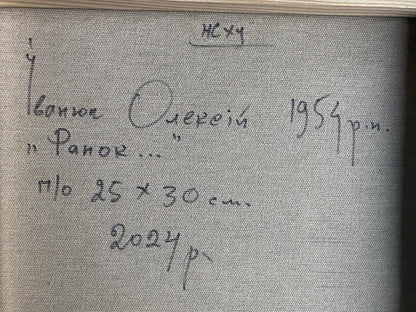 НСХУ
Іванюк Олексій 1954 р.н.
„Ранок..."
п/о 25 х 30 см.
2024 р.